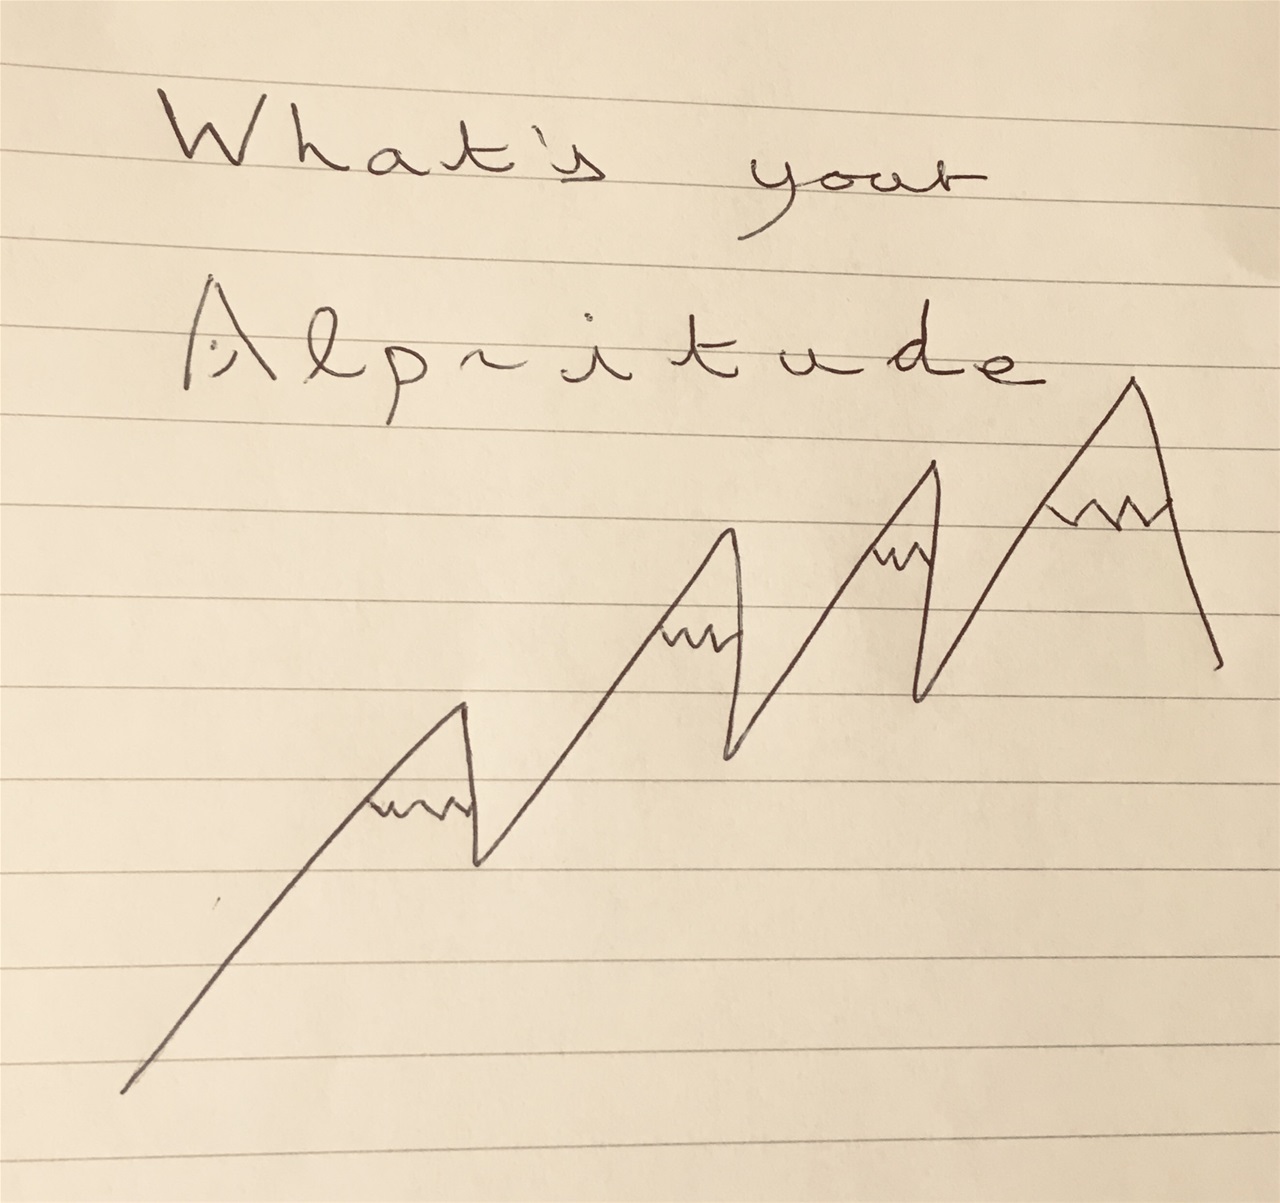 What's your
Alpritude